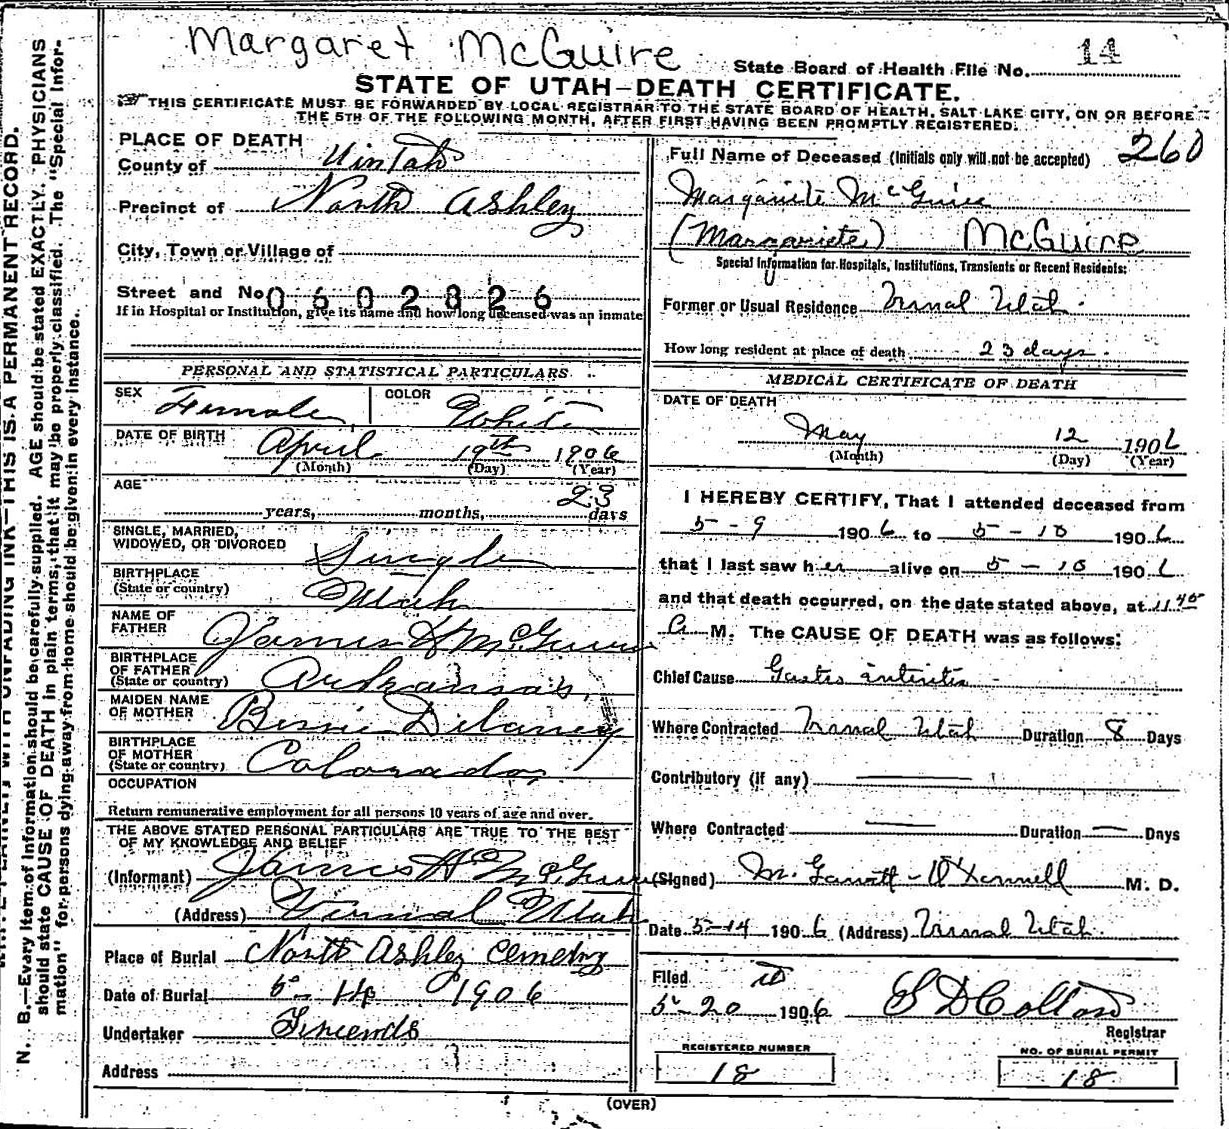 Margaret McGuire
State Board of Health File No. 14
STATE OF UTAH—DEATH CERTIFICATE.
THIS CERTIFICATE MUST BE FORWARDED BY LOCAL REGISTRAR TO THE STATE BOARD OF HEALTH, SALT LAKE CITY, ON OR BEFORE
THE 5TH OF THE FOLLOWING MONTH, AFTER FIRST HAVING BEEN PROMPTLY REGISTERED.
PLACE OF DEATH
County of Uintah
Precinct of North Ashley
City, Town or Village of
Street and No. 0602826
If in Hospital or Institution, give its name and how long deceased was an inmate
PERSONAL AND STATISTICAL PARTICULARS
SEX Female COLOR White
DATE OF BIRTH April 19th 1906
(Month) (Day) (Year)
AGE 23
years, months, days
SINGLE, MARRIED,
WIDOWED, OR DIVORCED Single
BIRTHPLACE
(State or country) Utah
NAME OF
FATHER James H McGuire
BIRTHPLACE
OF FATHER
(State or country) Arkansas
MAIDEN NAME
OF MOTHER Bessie Delaney
BIRTHPLACE
OF MOTHER
(State or country) Colorado
OCCUPATION
Return remunerative employment for all persons 10 years of age and over.
THE ABOVE STATED PERSONAL PARTICULARS ARE TRUE TO THE BEST
OF MY KNOWLEDGE AND BELIEF
(Informant) James H McGuire
(Address) Vernal Utah
Place of Burial North Ashley Cemetry
Date of Burial 5-14 1906
Undertaker Friends
Address
260
Full Name of Deceased (Initials only will not be accepted)
Margariete McGuire
(Margariete) McGuire
Special Information for Hospitals, Institutions, Transients or Recent Residents:
Former or Usual Residence Vernal Utah.
How long resident at place of death 23 days.
MEDICAL CERTIFICATE OF DEATH
DATE OF DEATH
May 12 1906
(Month) (Day) (Year)
I HEREBY CERTIFY, That I attended deceased from
5-9 1906 to 5-10 1906
that I last saw her alive on 5-10 1906
and that death occurred, on the date stated above, at 11.45
A M. The CAUSE OF DEATH was as follows:
Chief Cause Gastro enteritis
Where Contracted Vernal Utah Duration 8 Days
Contributory (if any)
Where Contracted Duration — Days
(Signed) M. D.
Date 5-14 1906 (Address) Vernal Utah.
Filed
5-20 1906 Colton
Registrar
REGISTERED NUMBER
18
NO. OF BURIAL PERMIT
18
(OVER)
N. B.—Every item of information should be carefully supplied. AGE should be stated EXACTLY. PHYSICIANS
should state CAUSE OF DEATH in plain terms, that it may be properly classified. The "Special Infor-
mation" for persons dying away from home should be given in every instance.
WITH UNFADING INK—THIS IS A PERMANENT RECORD.